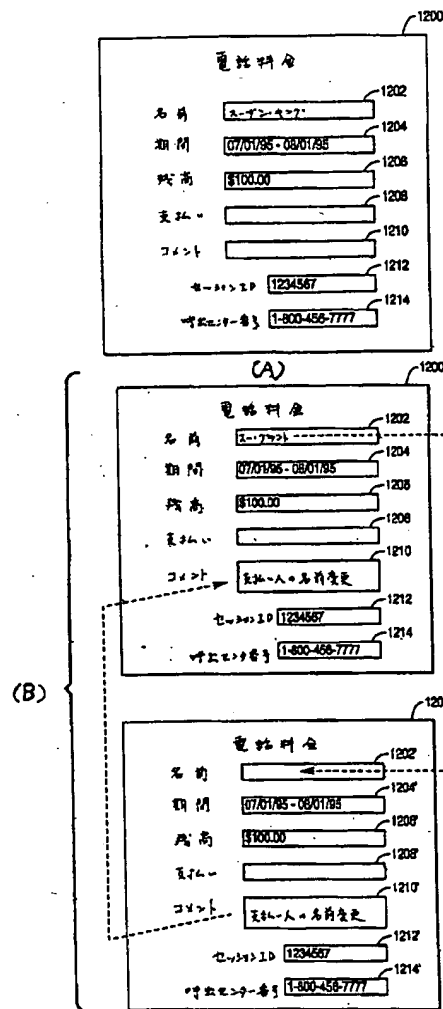 1200
電話料金
1202
名前 スーザン・キング
1204
期間 07/01/95 - 08/01/95
1206
残高 $100.00
1208
支払い
1210
コメント
1212
セッションID 1234567
1214
呼出センター番号 1-800-456-7777
(A)
1200
電話料金
1202
名前 スー・グラント
1204
期間 07/01/95 - 08/01/95
1206
残高 $100.00
1208
支払い
1210
コメント 支払い人の名前変更
1212
セッションID 1234567
1214
呼出センタ番号 1-800-456-7777
(B)
電話料金
1202'
名前
1204'
期間 07/01/95 - 08/01/95
残高 $100.00
1208'
支払い
1210'
コメント 支払い人の名前変更
1212'
セッションID 1234567
1214'
呼出センター番号 1-800-456-7777